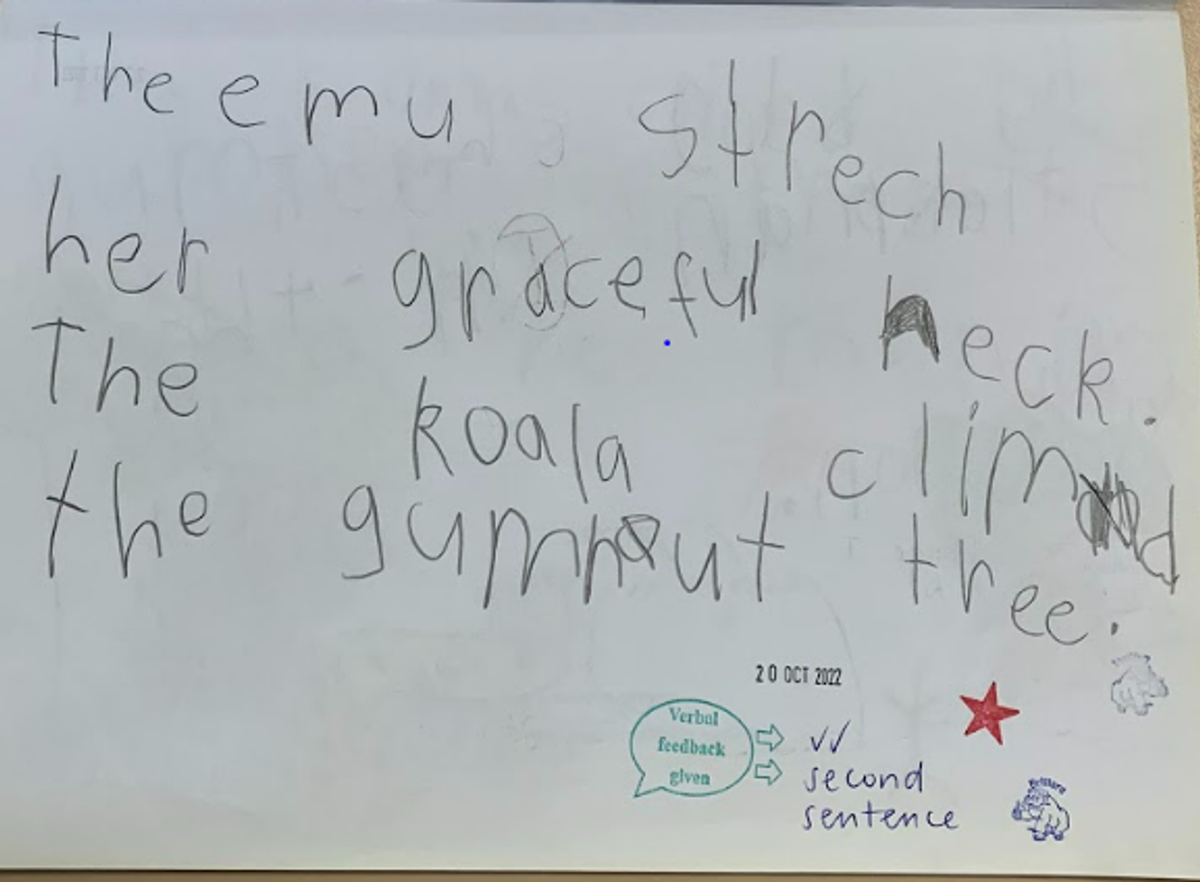 The emu strech
her graceful neck.
The koala climd
the gumnut tree.
20 OCT 2022
Verbal
feedback
given
✓✓
second
sentence